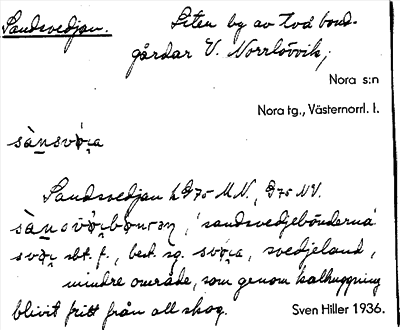 Sandsvedjan. Liten by av två bond-
gårdar V. Norrlövvik;
Nora s:n
Nora tg., Västernorrl. l.
sànsvö̀ɩa
Sandsvedjan
'sandsvedjebönderna'
svedjeland,
mindre område, som genom kalhuggning
blivit fritt från all skog.
Sven Hiller 1936.